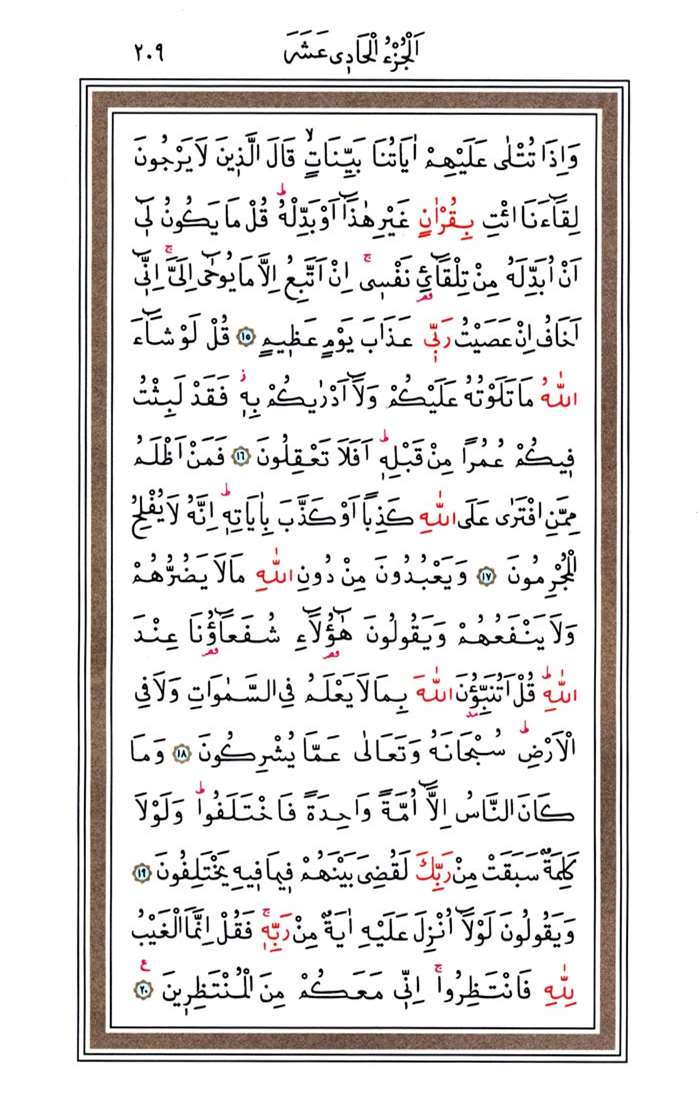 اَلْجُزْءُ الْحَادِى عَشَرَ ٢٠٩
وَاِذَا تُتْلٰى عَلَيْهِمْ اٰيَاتُنَا بَيِّنَاتٍۙ قَالَ الَّذ۪ينَ لَا يَرْجُونَ
لِقَٓاءَنَا ائْتِ بِقُرْاٰنٍ غَيْرِ هٰذَٓا اَوْ بَدِّلْهُۜ قُلْ مَا يَكُونُ ل۪ٓى
اَنْ اُبَدِّلَهُ مِنْ تِلْقَٓائِ۬ نَفْس۪ىۚ اِنْ اَتَّبِعُ اِلَّا مَا يُوحٰٓى اِلَىَّۚ اِنّ۪ٓى
اَخَافُ اِنْ عَصَيْتُ رَبّ۪ى عَذَابَ يَوْمٍ عَظ۪يمٍ ﴿١٥﴾ قُلْ لَوْ شَٓاءَ
اللّٰهُ مَا تَلَوْتُهُ عَلَيْكُمْ وَلَٓا اَدْرٰيكُمْ بِه۪ۘ فَقَدْ لَبِثْتُ
ف۪يكُمْ عُمُرًا مِنْ قَبْلِه۪ۜ اَفَلَا تَعْقِلُونَ ﴿١٦﴾ فَمَنْ اَظْلَمُ
مِمَّنِ افْتَرٰى عَلَى اللّٰهِ كَذِبًا اَوْ كَذَّبَ بِاٰيَاتِه۪ۜ اِنَّهُ لَا يُفْلِحُ
الْمُجْرِمُونَ ﴿١٧﴾ وَيَعْبُدُونَ مِنْ دُونِ اللّٰهِ مَا لَا يَضُرُّهُمْ
وَلَا يَنْفَعُهُمْ وَيَقُولُونَ هٰٓؤُ۬لَٓاءِ شُفَعَٓاؤُ۬نَا عِنْدَ
اللّٰهِۜ قُلْ اَتُنَبِّؤُ۫نَ اللّٰهَ بِمَا لَا يَعْلَمُ فِى السَّمٰوَاتِ وَلَا فِى
الْاَرْضِۜ سُبْحَانَهُ وَتَعَالٰى عَمَّا يُشْرِكُونَ ﴿١٨﴾ وَمَا
كَانَ النَّاسُ اِلَّٓا اُمَّةً وَاحِدَةً فَاخْتَلَفُواۜ وَلَوْلَا
كَلِمَةٌ سَبَقَتْ مِنْ رَبِّكَ لَقُضِىَ بَيْنَهُمْ ف۪يمَا ف۪يهِ يَخْتَلِفُونَ ﴿١٩﴾
وَيَقُولُونَ لَوْلَٓا اُنْزِلَ عَلَيْهِ اٰيَةٌ مِنْ رَبِّه۪ۚ فَقُلْ اِنَّمَا الْغَيْبُ
لِلّٰهِ فَانْتَظِرُواۚ اِنّ۪ى مَعَكُمْ مِنَ الْمُنْتَظِر۪ينَ ﴿٢٠﴾ ع